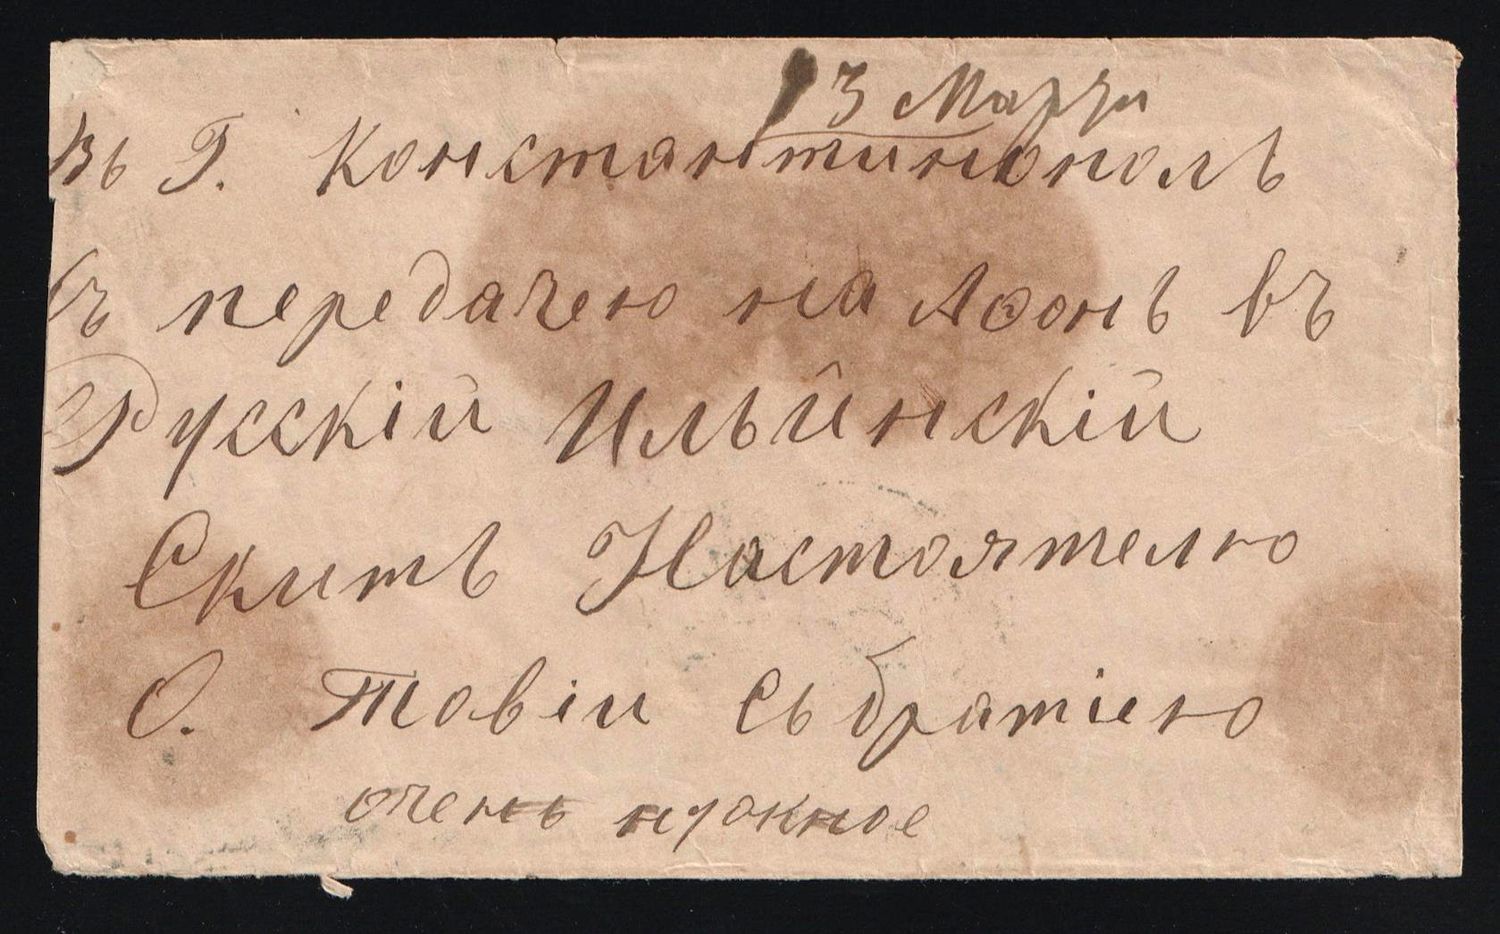 3 Марта
Въ Г. Константинополь
Съ передачею на Аѳонъ въ
Русскій Ильинскій
Скитъ Настоятелю
О. Товіи съ братіею
очень нужное